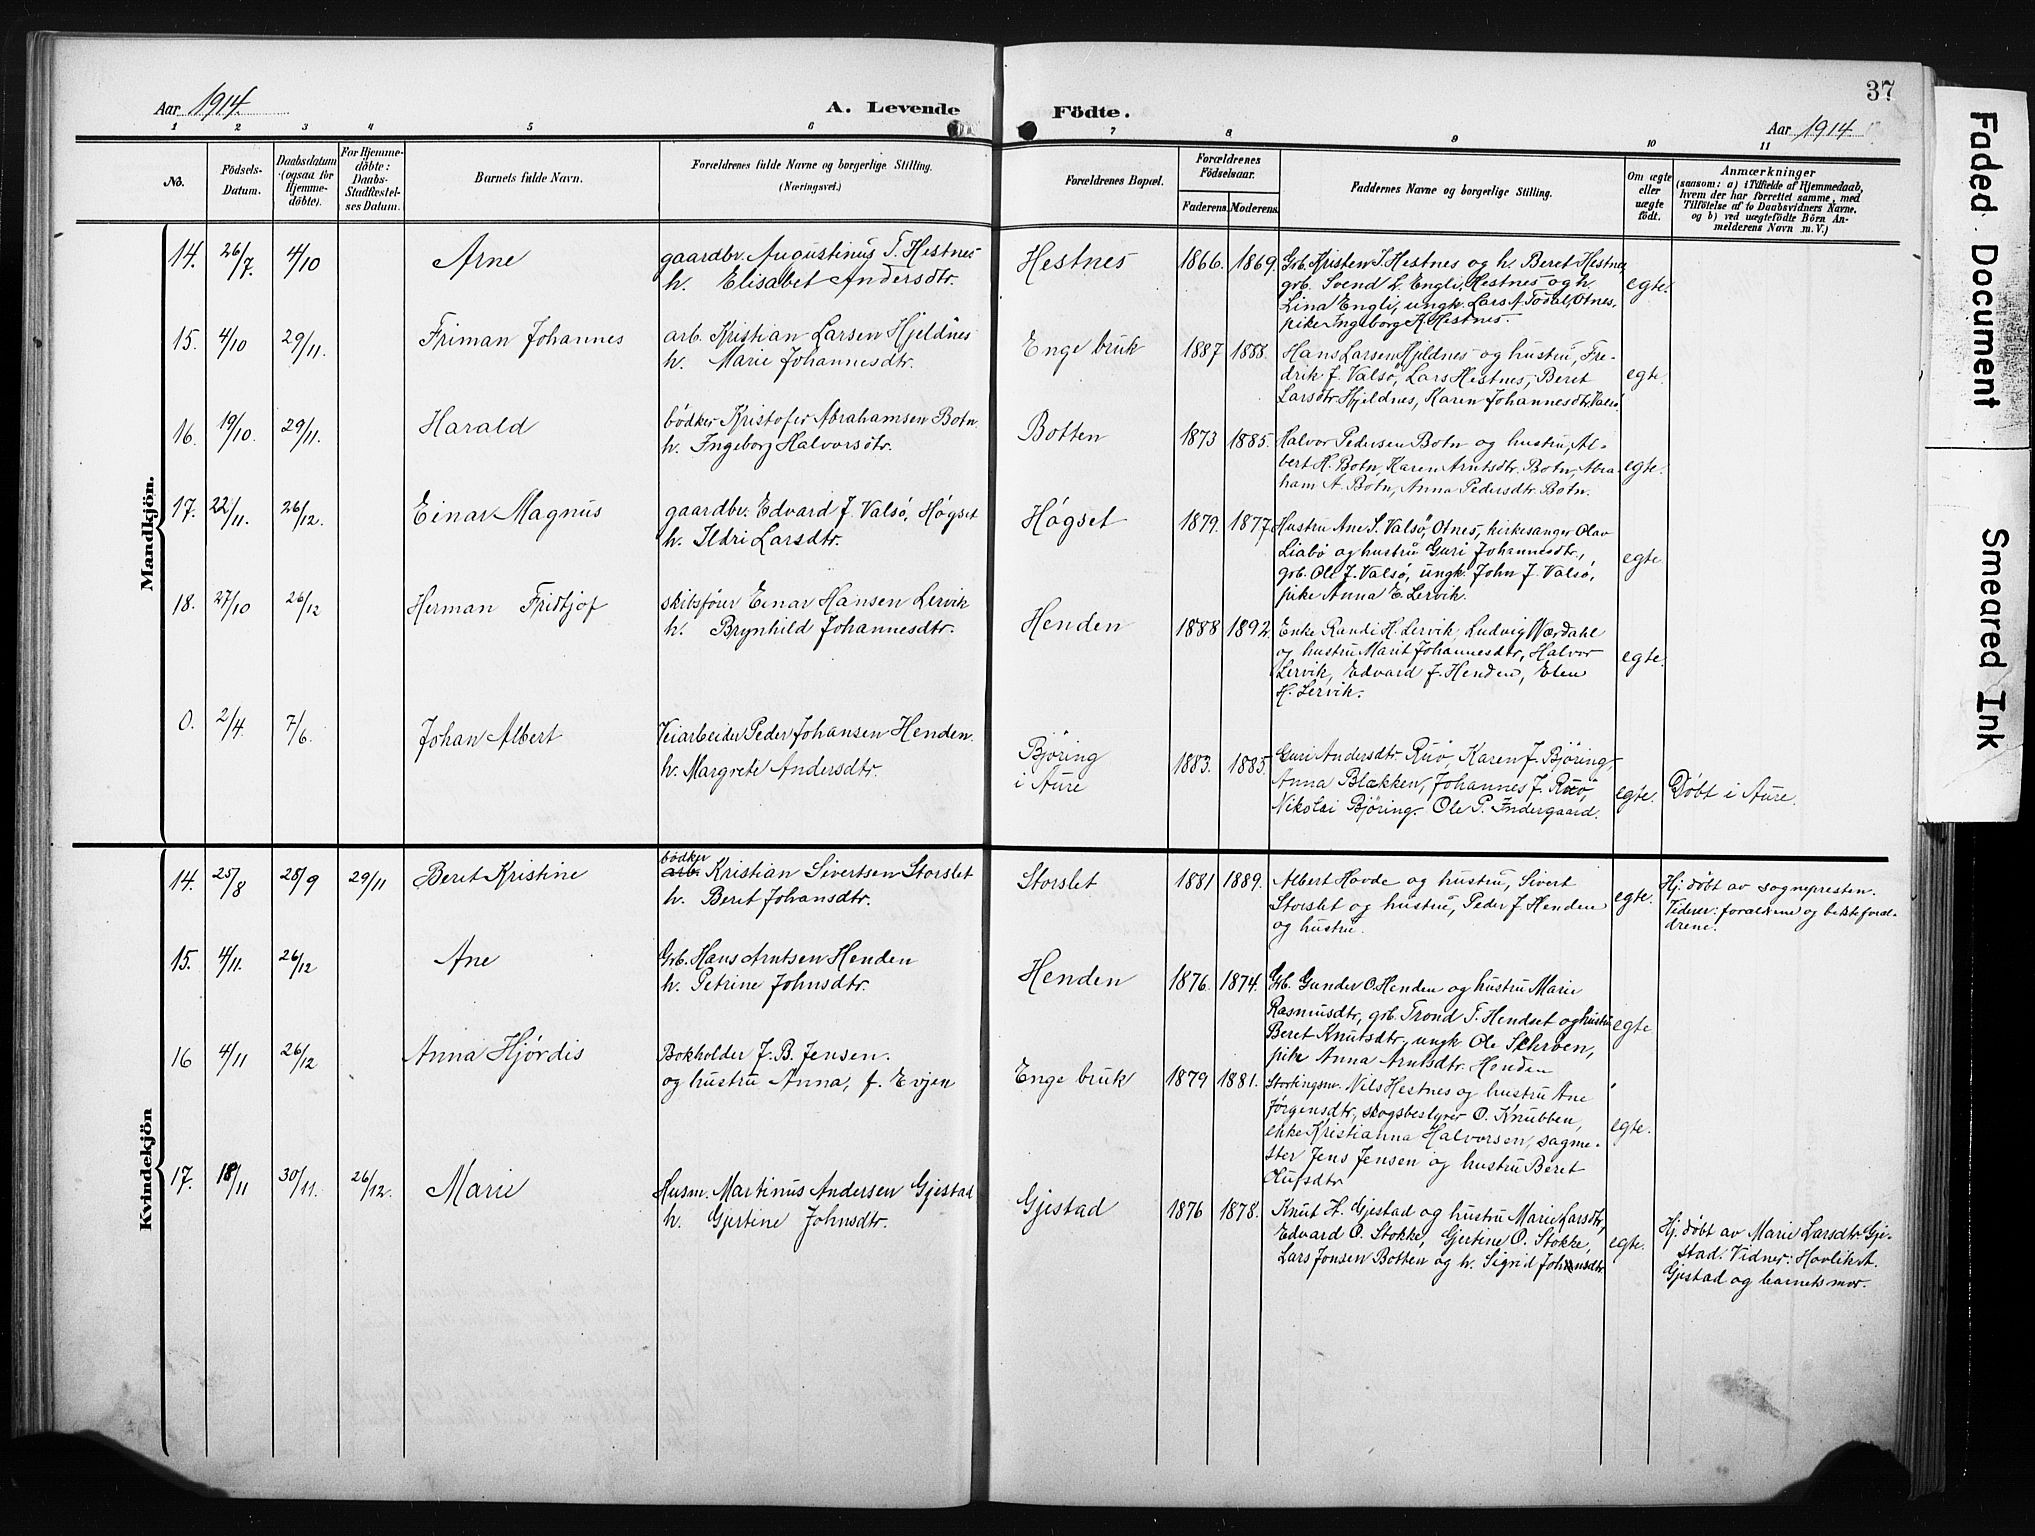 37
Aar 1914.
A. Levende Födte.
Aar 1914.
1 2 3 4 5 6 7 8 9 10 11
No.
Födsels-
Datum.
Daabsdatum
(ogsaa for
Hjemme-
döbte).
For Hjemme-
döbte:
Daabs-
Stadfæstel-
ses Datum.
Barnets fulde Navn.
Forældrenes fulde Navne og borgerlige Stilling.
(Næringsvei.)
Forældrenes Bopæl.
Forældrenes
Födselsaar.
Faderens. Moderens.
Faddernes Navne og borgerlige Stilling.
Om ægte
eller
uægte
födt.
Anmærkninger
(saasom: a) i Tilfælde af Hjemmedaab,
hvem der har forrettet samme, med
Tilföielse af to Daabsvidners Navne.
og b) ved uægtefödte Börn An-
melderens Navn m. V.)
Mandkjön.
14. 26/7. 4/10 Arne
gaardbr. Augustinus T. Hestnes
h. Elisabet Andersdtr.
Hestnes 1866. 1869.
Grb. Kristen J. Hestnes og h. Beret Hestnes
grb. Svend L. Engli, Hestnes og h.
Lina Engli, ungk. Lars A. Todal, Otnes,
pike Ingeborg K. Hestnes.
egte.
15. 4/10 29/11. Friman Johannes
arb. Kristian Larsen Hjeldnes
h. Marie Johannesdtr.
Enge bruk 1887 1888.
Hans Larsen Hjeldnes og hustru, Fre-
drik J. Valsø, Lars Hestnes, Beret
Larsdtr. Hjeldnes, Karen Johannesdtr. Valsø
egte.
16. 19/10. 29/11. Harald
bødker Kristofer Abrahamsen Botn
h. Ingeborg Halvorsdtr.
Botten 1873 1885.
Halvor Pedersen Botn og hustru, Al-
bert H. Botn, Karen Arntsdtr. Botn, Abra-
ham A. Botn, Anna Pedersdtr. Botn.
egte.
17. 22/11. 26/12. Einar Magnus
gaardbr. Edvard J. Valsø, Høgset
h. Ildri Larsdtr.
Høgset 1879. 1877.
Hustru Ane S. Valsø, Otnes, kirkesanger Olav
Liabø og hustru Guri Johannesdtr.,
grb. Ole J. Valsø, ungk. John J. Valsø,
pike Anna E. Lervik.
egte.
18. 27/10 26/12 Herman Fridtjof
skibsfører Einar Hansen Lervik
h. Brynhild Johannesdtr.
Henden 1888 1892.
Enke Randi H. Lervik, Ludvig Nærdahl
og hustru Marit Johannesdtr, Halvor
Lervik, Edvard J. Henden, Elen
H. Lervik.
egte.
0. 2/4. 7/6. Johan Albert
Veiarbeider Peder Johansen Henden.
h. Margrete Andersdtr.
Bjøring
i Aure
1883. 1885.
Guri Andersdtr. Ruø, Karen J. Bjøring,
Anna Blækken, Johannes J. Ruø,
Nikolai Bjøring. Ole P. Indergaard.
egte. Døbt i Aure.
Kvindekjön
14. 25/8 28/9 29/11 Beret Kristine
bødker
arb. Kristian Sivertsen Storslet
h. Beret Johansdtr.
Storslet 1881 1889.
Albert Hovde og hustru, Sivert
Storslet og hustru, Peder J. Henden
og hustru.
egte.
Hj. døbt av sognepresten.
Vidner: forældrene og bedsteforæl-
drene.
15. 4/11. 26/12 Ane
Grb. Hans Arntsen Henden
h. Petrine Johnsdtr.
Henden 1876. 1874.
Grb. Gunder O. Henden og hustru Marie
Rasmusdtr, grb. Trond T. Hendset og hustru
Beret Knutsdtr, ungk Ole Skrøven,
pike Anna Arntsdtr. Henden
egte
16 4/11 26/12 Anna Hjørdis
Bokholder J. B. Jensen.
og hustru Anna, f. Evjen
Enge bruk 1879 1881.
Stortingsm. Nils Hestnes og hustru Ane
Jørgensdtr, skogsbestyrer O. Knubben,
enke Kristianna Halvorsen, sagme-
ster Jens Jensen og hustru Beret
Olufsdtr
egte.
17. 18/11 30/11. 26/12. Marie
Husm. Martinus Andersen Gjestad
h. Gjertine Johnsdtr.
Gjestad 1876 1878.
Knut H. Gjestad og hustru Marie Larsdtr,
Edvard O. Stokke, Gjertine O. Stokke,
Lars Jonsen Botten og h. Sigrid Johnsdtr.
egte.
Hj. døbt av Marie Larsdtr. Gje-
stad. Vidner: Hovlik A.
Gjestad og barnets mor.
Faded Document
Smeared Ink